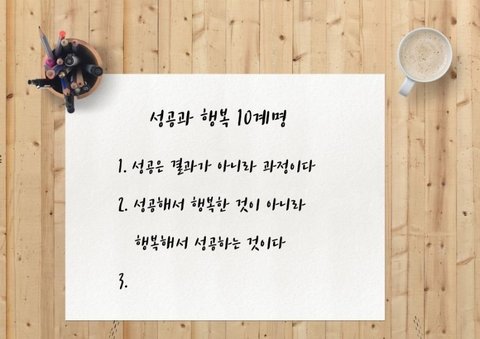 성공과 행복 10계명
1. 성공은 결과가 아니라 과정이다
2. 성공해서 행복한 것이 아니라
행복해서 성공하는 것이다
3.